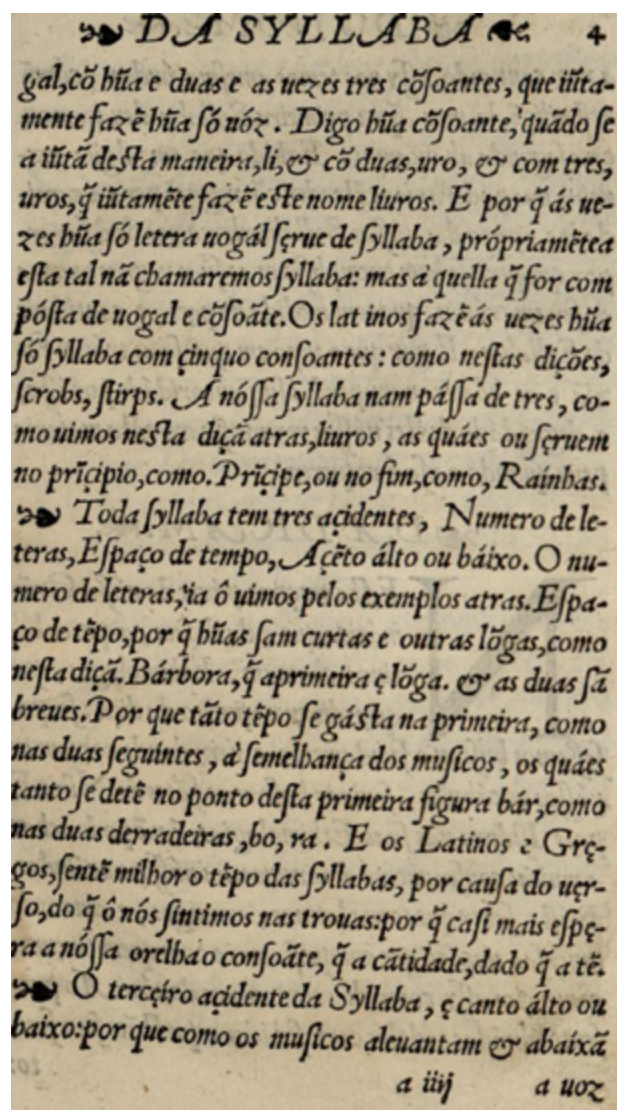 ❧ DA SYLLABA ❧ 4
gal,cõ hũa e duas e as uezes tres cõſoantes, que iũta-
mente fazẽ hũa ſó uóz. Digo hũa cõſoante, quãdo ſe
a iũtã deſta maneira,li,& cõ duas,uro, & com tres,
uros,q̃ iũtamẽte fazẽ eſte nome liuros. E por q̃ ás ue-
zes hũa ſó letera uogál ſęrue de ſyllaba, própriamẽtea
eſta tal nã chamaremos ſyllaba: mas à quella q̃ for com
póſta de uogal e cõſoãte.Os lat inos fazẽ ás uezes hũa
ſó ſyllaba com çinquo conſoantes: como neſtas dições,
ſcrobs, ſtirps. A nóſſa ſyllaba nam páſſa de tres, co-
mo uimos neſta diçã atras,liuros, as quáes ou ſęruem
no prĩçipio,como.Prĩçipe,ou no fim,como, Raínhas.
❧ Toda ſyllaba tem tres açidentes, Numero de le-
teras, Eſpaço de tempo, Açẽto álto ou báixo. O nu-
mero de leteras,ia ô uimos pelos exemplos atras.Eſpa-
ço de tẽpo,por q̃ hũas ſam curtas e outras lõgas,como
neſta diçã.Bárbora,q̃ aprimeira ę lõga. & as duas ſã
breues.Por que tãto tẽpo ſe gáſta na primeira, como
nas duas ſeguintes, à ſemelhança dos muſicos, os quáes
tanto ſe detẽ no ponto deſta primeira figura bár,como
nas duas derradeiras,bo, ra. E os Latinos e Gręgos,ſentẽ milhor o tẽpo das ſyllabas, por cauſa do uęr-
ſo,do q̃ ô nós ſintimos nas trouas:por q̃ caſi mais eſpę-
ra a nóſſa orelha o conſoãte, q̃ a cãtidade,dado q̃ a tẽ.
❧ O terçeíro açidente da Syllaba, ę canto álto ou
baixo:por que como os muſicos aleuantam & abaíxã
a iiij a uoz